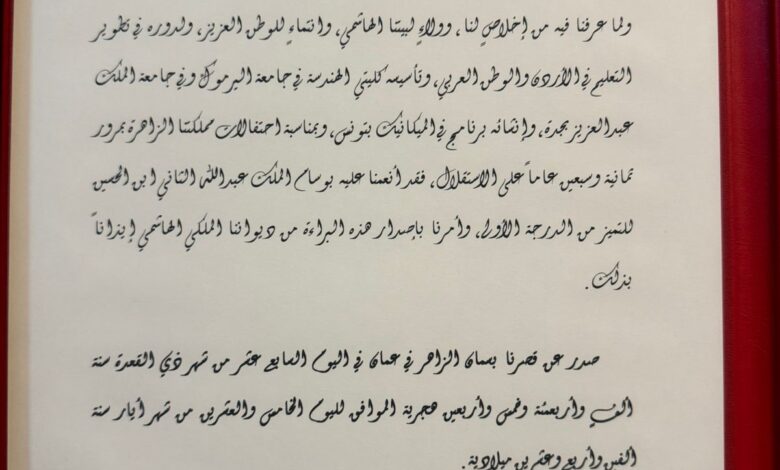 ولما عرفنا فيه من إخلاصٍ لنا، وولاءٍ لبيتنا الهاشمي، وانتماءٍ للوطن العزيز، ولدوره في تطوير
التعليم في الأردن والوطن العربي، وتأسيسه كليتي الهندسة في جامعة اليرموك وفي جامعة الملك
عبدالعزيز بجدة، وإنشائه برنامج في الميكانيك بتونس، وبمناسبة احتفالات مملكتنا الزاهرة بمرور
ثمانية وسبعين عاماً على الاستقلال، فقد أنعمنا عليه بوسام الملك عبدالله الثاني ابن الحسين
للتميز من الدرجة الأولى، وأمرنا بإصدار هذه البراءة من ديواننا الملكي الهاشمي إيذاناً
بذلك.
صدر عن قصرنا بسمان الزاهر في عمان في اليوم السابع عشر من شهر ذي القعدة سنة
ألفٍ وأربعمئة وخمس وأربعين هجرية الموافق لليوم الخامس والعشرين من شهر أيار سنة
ألفين وأربع وعشرين ميلادية.